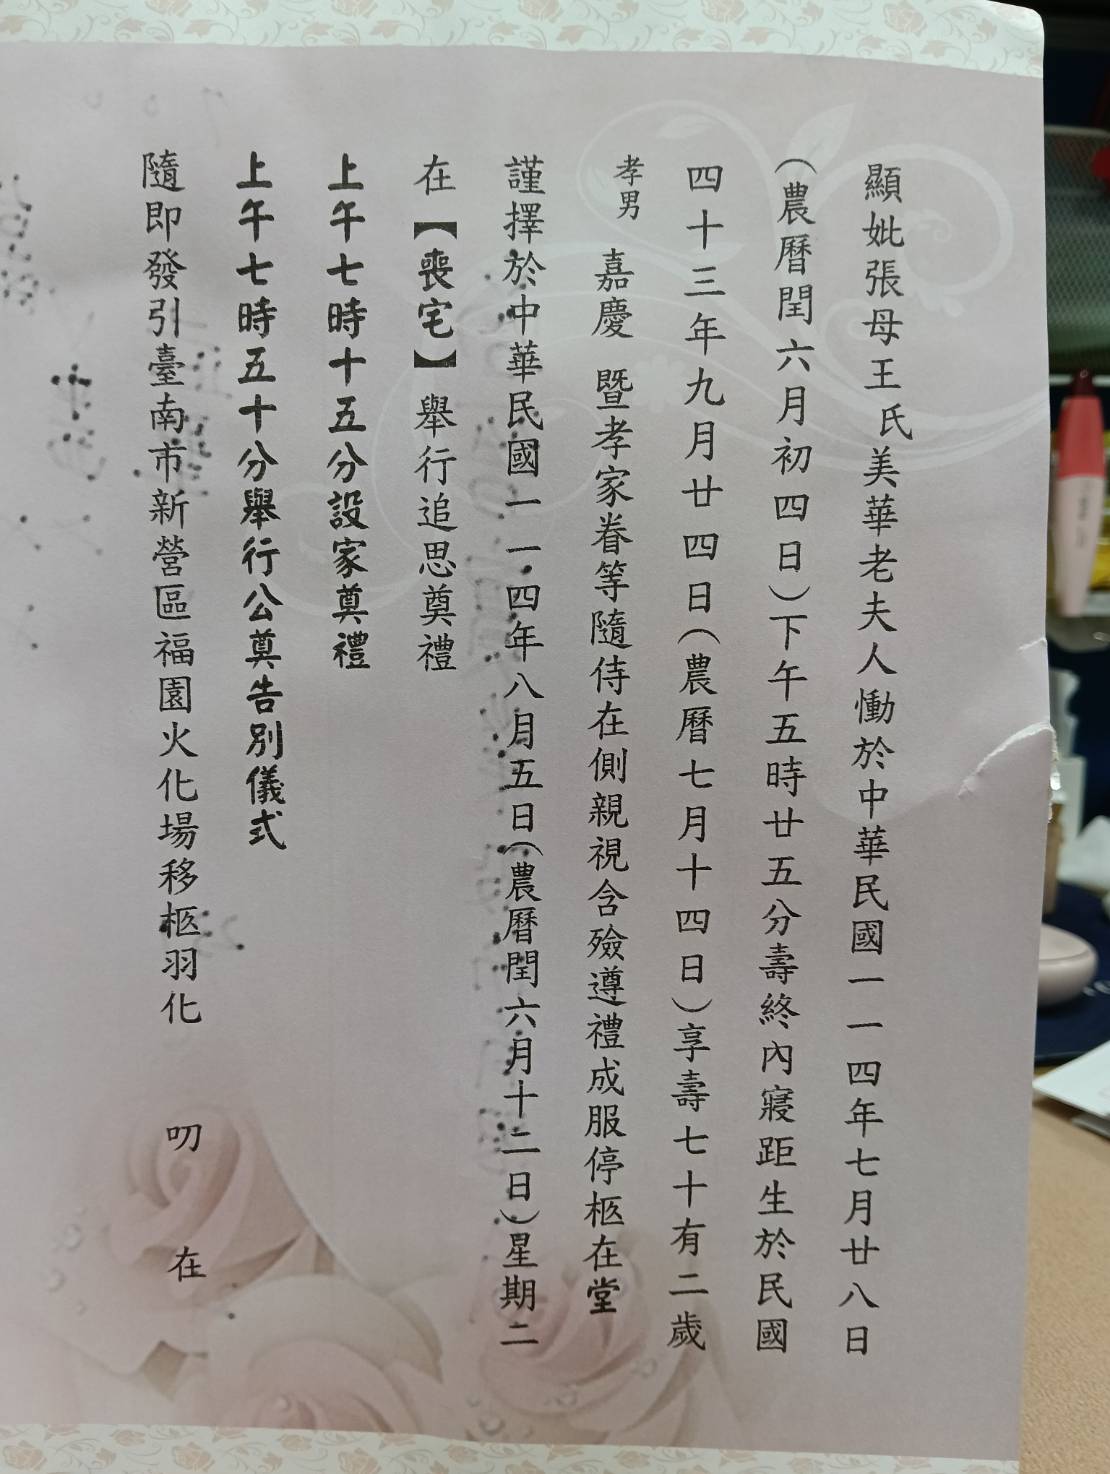 顯妣張母王氏美華老夫人慟於中華民國一一四年七月廿八日
(農曆閏六月初四日)下午五時廿五分壽終內寢距生於民國
四十三年九月廿四日(農曆七月十四日)享壽七十有二歲
孝男 嘉慶 暨孝家眷等隨侍在側親視含殮遵禮成服停柩在堂
謹擇於中華民國一一四年八月五日(農曆閏六月十二日)星期二
在【喪宅】舉行追思奠禮
上午七時十五分設家奠禮
上午七時五十分舉行公奠告別儀式
隨即發引臺南市新營區福園火化場移柩羽化 叨 在